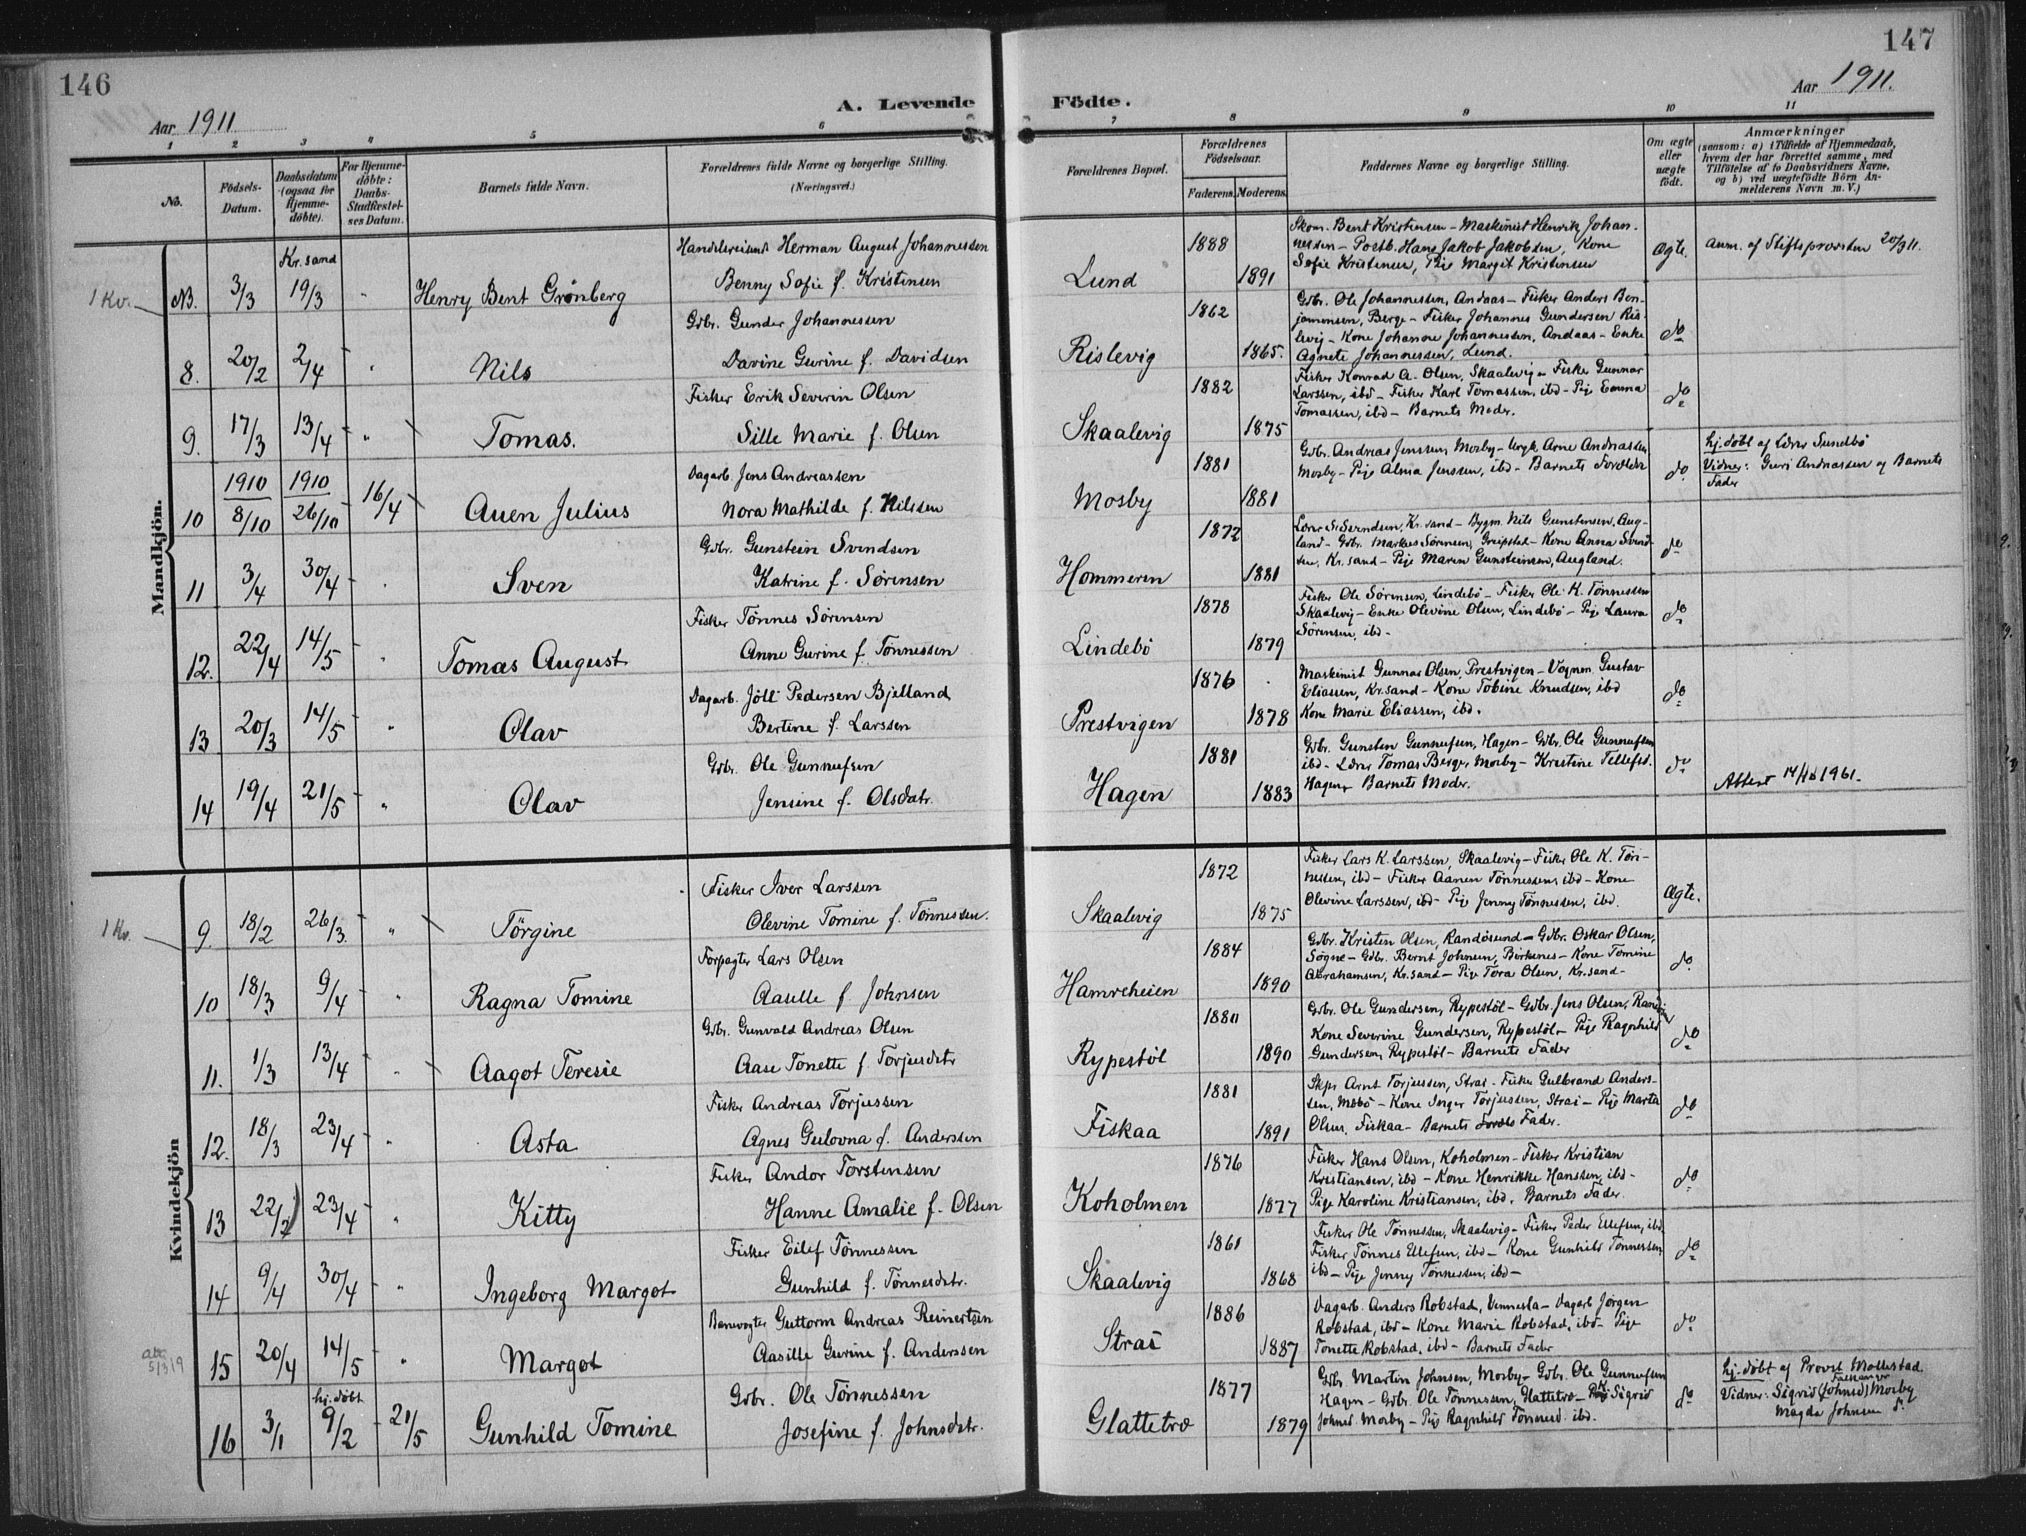 146
147
Aar 1911.
A. Levende Födte.
Aar 1911.
1 2 3 4 5 6 7 8 9 10 11
No.
Födsels-Datum.
Daabsdatum (ogsaa for Hjemme-döbte).
For Hjemme-döbte: Daabs-Stadfæstel-ses Datum.
Barnets fulde Navn.
Forældrenes fulde Navne og borgerlige Stilling.
(Næringsvei.)
Forældrenes Bopæl.
Forældrenes Födselsaar.
Faderens. Moderens.
Faddernes Navne og borgerlige Stilling.
Om ægte eller uægte födt.
Anmærkninger
(saasom: a) i Tilfælde af Hjemmedaab, hvem der har forrettet samme, med Tilföielse af to Daabsvidners Navne, og b) ved uægtefödte Börn An-melderens Navn m. V.)
Mandkjön.
1 Kv.
NB. 3/3 Kr.sand 19/3 " Henry Bent Grønberg
Handelsreisende Herman August Johannessen
Benny Sofie f. Kristensen
Lund 1888 1891
Skom. Bent Kristensen - Maskinist Henrik Johan-
nessen - Postb. Hans Jakob Jakobsen, Kone
Sofie Kristensen, Pige Margit Kristensen
Ægte. anm. af Stiftsprovsten 20/3 11.
8. 20/2 2/4 " Nils
Gdbr. Gunder Johannessen
Davine Gurine f. Davidsen
Rislevig 1862 1865.
Gdbr. Ole Johannessen, Andaas - Fisker Anders Ben-
jaminsen, Berge - Fisker Johannes Gundersen Ris-
levig - Kone Johanne Johannessen, Andaas - Enke
Agnete Johannessen, Lund.
do
9. 17/3 13/4 " Tomas.
Fisker Erik Severin Olsen
Sille Marie f. Olsen
Skaalevig 1882 1875
Fisker Konrad A. Olsen, Skaalevig - Fisker Gunnar
Larssen, ibd - Fisker Karl Tomassen, ibd - Pige Emma
Tomassen, ibd - Barnets Moder.
do
10 1910 8/10 1910 26/10 16/4 Auen Julius
Dagarb. Jens Andreassen
Nora Mathilde f. Nilssen
Mosby 1881 1881
Gdbr. Andreas Jenssen, Mosby - Ungk. Arne Andreassen
Mosby - Pige Alma Jenssen, ibd - Barnets Forældre
do
hj. döbt af Lærer Sundbö
Vidner: Guri Andreassen og Barnets
Fader
11 3/4 30/4 " Sven
Gdbr. Gunstein Svendsen
Katrine f. Sørensen
Hommeren 1872 1881
Lærer S. Svendsen, Kr.sand - Bygm. Nils Gunstensen, Aug-
land - Gdbr. Markus Sörensen, Greipstad - Kone Anna Svend-
sen, Kr.sand - Pige Maren Gunsteinsen, Augland.
do
12. 22/4 14/5 " Tomas August
Fisker Tønnes Sørensen
Anne Gurine f. Tønnessen
Lindebö 1878 1879
Fisker Ole Sørensen, Lindebö - Fisker Ole K. Tönnessen
Skaalevig - Enke Olevine Olsen, Lindebö - Pige Laura
Sörensen, ibd -
do
13 20/3 14/5 " Olav
Dagarb. Jöll Pedersen Bjelland
Bertine f. Larssen
Prestvigen 1876 1878
Maskinist Gunnar Olsen, Prestvigen - Vognm. Gustav
Eliassen, Kr.sand - Kone Tobine Knudsen, ibd
Kone Marie Eliassen, ibd.
do
14 19/4 21/5 " Olav
Gdbr. Ole Gunnufsen
Jensine f. Olsdatr.
Hagen 1881 1883
Gdbr. Gunsten Gunnufsen, Hagen - Gdbr. Ole Gunnufsen
ibd - Lærer Tomas Berge, Mosby - Kristine Tellefsd.
Hagen, Barnets Moder.
do
Attest 14/10 1961.
Kvindekjön
1 Kv.
9. 18/2 26/3. " Törgine
Fisker Iver Larssen
Olevine Tomine f. Tønnessen.
Skaalevig 1872 1875
Fisker Lars K. Larssen, Skaalevig - Fisker Ole K. Tön-
nessen, ibd - Fisker Aanen Tönnessen, ibd - Kone
Olevine Larssen, ibd - Pige Jenny Tönnessen, ibd.
Ægte.
10 18/3 9/4 " Ragna Tomine
Forpagter Lars Olsen
Aasille f. Johnsen
Hamreheien 1884 1890
Gdbr. Kristen Olsen, Randösund - Gdbr. Oskar Olsen,
Søgne - Gdbr. Bernt Johnsen, Birkenes - Kone Tomine
Abrahamsen, Kr.sand - Pige Tora Olsen, Kr.sand -
do.
11. 1/3 13/4 " Aagot Teresie
Gdbr. Gunvald Andreas Olsen
Aase Tonette f. Torjusdtr
Rypestöl 1880 1890
Gdbr. Ole Gundersen, Rypestöl - Gdbr. Jens Olsen,
Kone Severine Gundersen, Rypestöl - Pige Ragnhild
Gundersen, Rypestöl - Barnets Fader
do
12. 18/3 23/4 " Asta
Fisker Andreas Torjussen
Agnes Gulovna f. Anderssen
Fiskaa 1881 1891
Skpr. Arnt Torjussen, Strai - Fisker Gulbrand Anders-
sen, - Kone Inger Torjussen, Strai - Pige Marta
Olsen, Fiskaa - Barnets Fader.
do
13 22/2 23/4 " Kitty
Fisker Andor Torstensen
Hanne Amalie f. Olsen
Koholmen 1876 1877
Fisker Hans Olsen, Koholmen - Fisker Kristian
Kristiansen, ibd - Kone Henrikke Hanssen, ibd -
Pige Karoline Kristiansen, ibd. Barnets Fader.
do
14 9/4 30/4 " Ingeborg Margot
Fisker Eilef Tønnessen
Gunhild f. Tønnesdtr.
Skaalevig 1861 1868
Fisker Ole Tønnessen, Skaalevig - Fisker Peder Ellefsen, ibd
Fisker Tønnes Ellefsen, ibd - Kone Gunhild Tønnessen
ibd - Pige Jenny Tønnessen, ibd -
do
15 20/4 14/5 " Margot
Banevogter Guttorm Andreas Reinertsen
Aasille Gurine f. Anderssen
Strai 1886 1887
Dagarb. Anders Robstad, Vennesla - Dagarb Jörgen
Robstad, ibd - Kone Marie Robstad, ibd - Pige
Tonette Robstad, ibd - Barnets Fader
do
16 3/1 hj. döbt 9/2 21/5 Gunhild Tomine
Gdbr. Ole Tønnessen
Josefine f. Johnsdtr.
Glattetræ 1877 1879
Gdbr. Martin Johnsen, Mosby - Gdbr. Ole Gunnufsen
Hagen - Gdbr. Ole Tønnessen, Glattetræ - Sigrid
Johnsd. Mosby - Pige Ragnhild Tønnesd. ibd.
do
hj. döbt af Provst Mollestad
Vidner: Sigrid (Johnsd) Mosby
Magda Johnsen